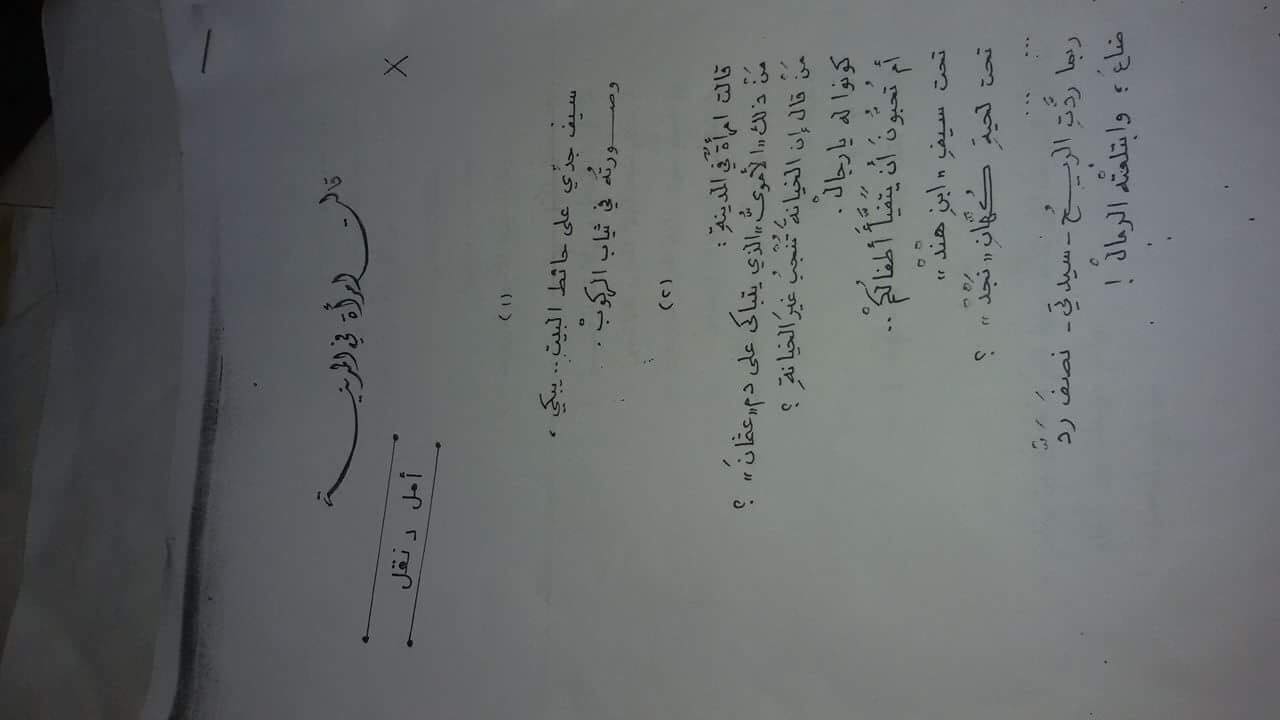 قالت امرأة في المدينة
أمل دنقل
(١)
سيف جدي على حائط البيت .. يبكي ،
وصـــورتُه في ثياب الركوبْ .
(٢)
قالت امرأةٌ في المدينةِ :
مَنْ ذلك «الأمويُّ» الذي يتباكى على دم «عثمانَ» ؟
مَنْ قال إن الخيانةَ تُنجبُ غيرَ الخيانةِ ؟
كونوا له يا رجالْ .
أم تُحبونَ أن يتفيَّأَ أطفالُكمْ ..
تحت سيفِ «ابنِ هندْ»
تحت لحيةِ كُهَّانِ «نَجْدْ» ؟
... ... ...
ربما ردَّتِ الريـحُ - سيدتي - نصفَ رَدّْ
ضاعَ ؛ وابتلعتْه الرمالْ !